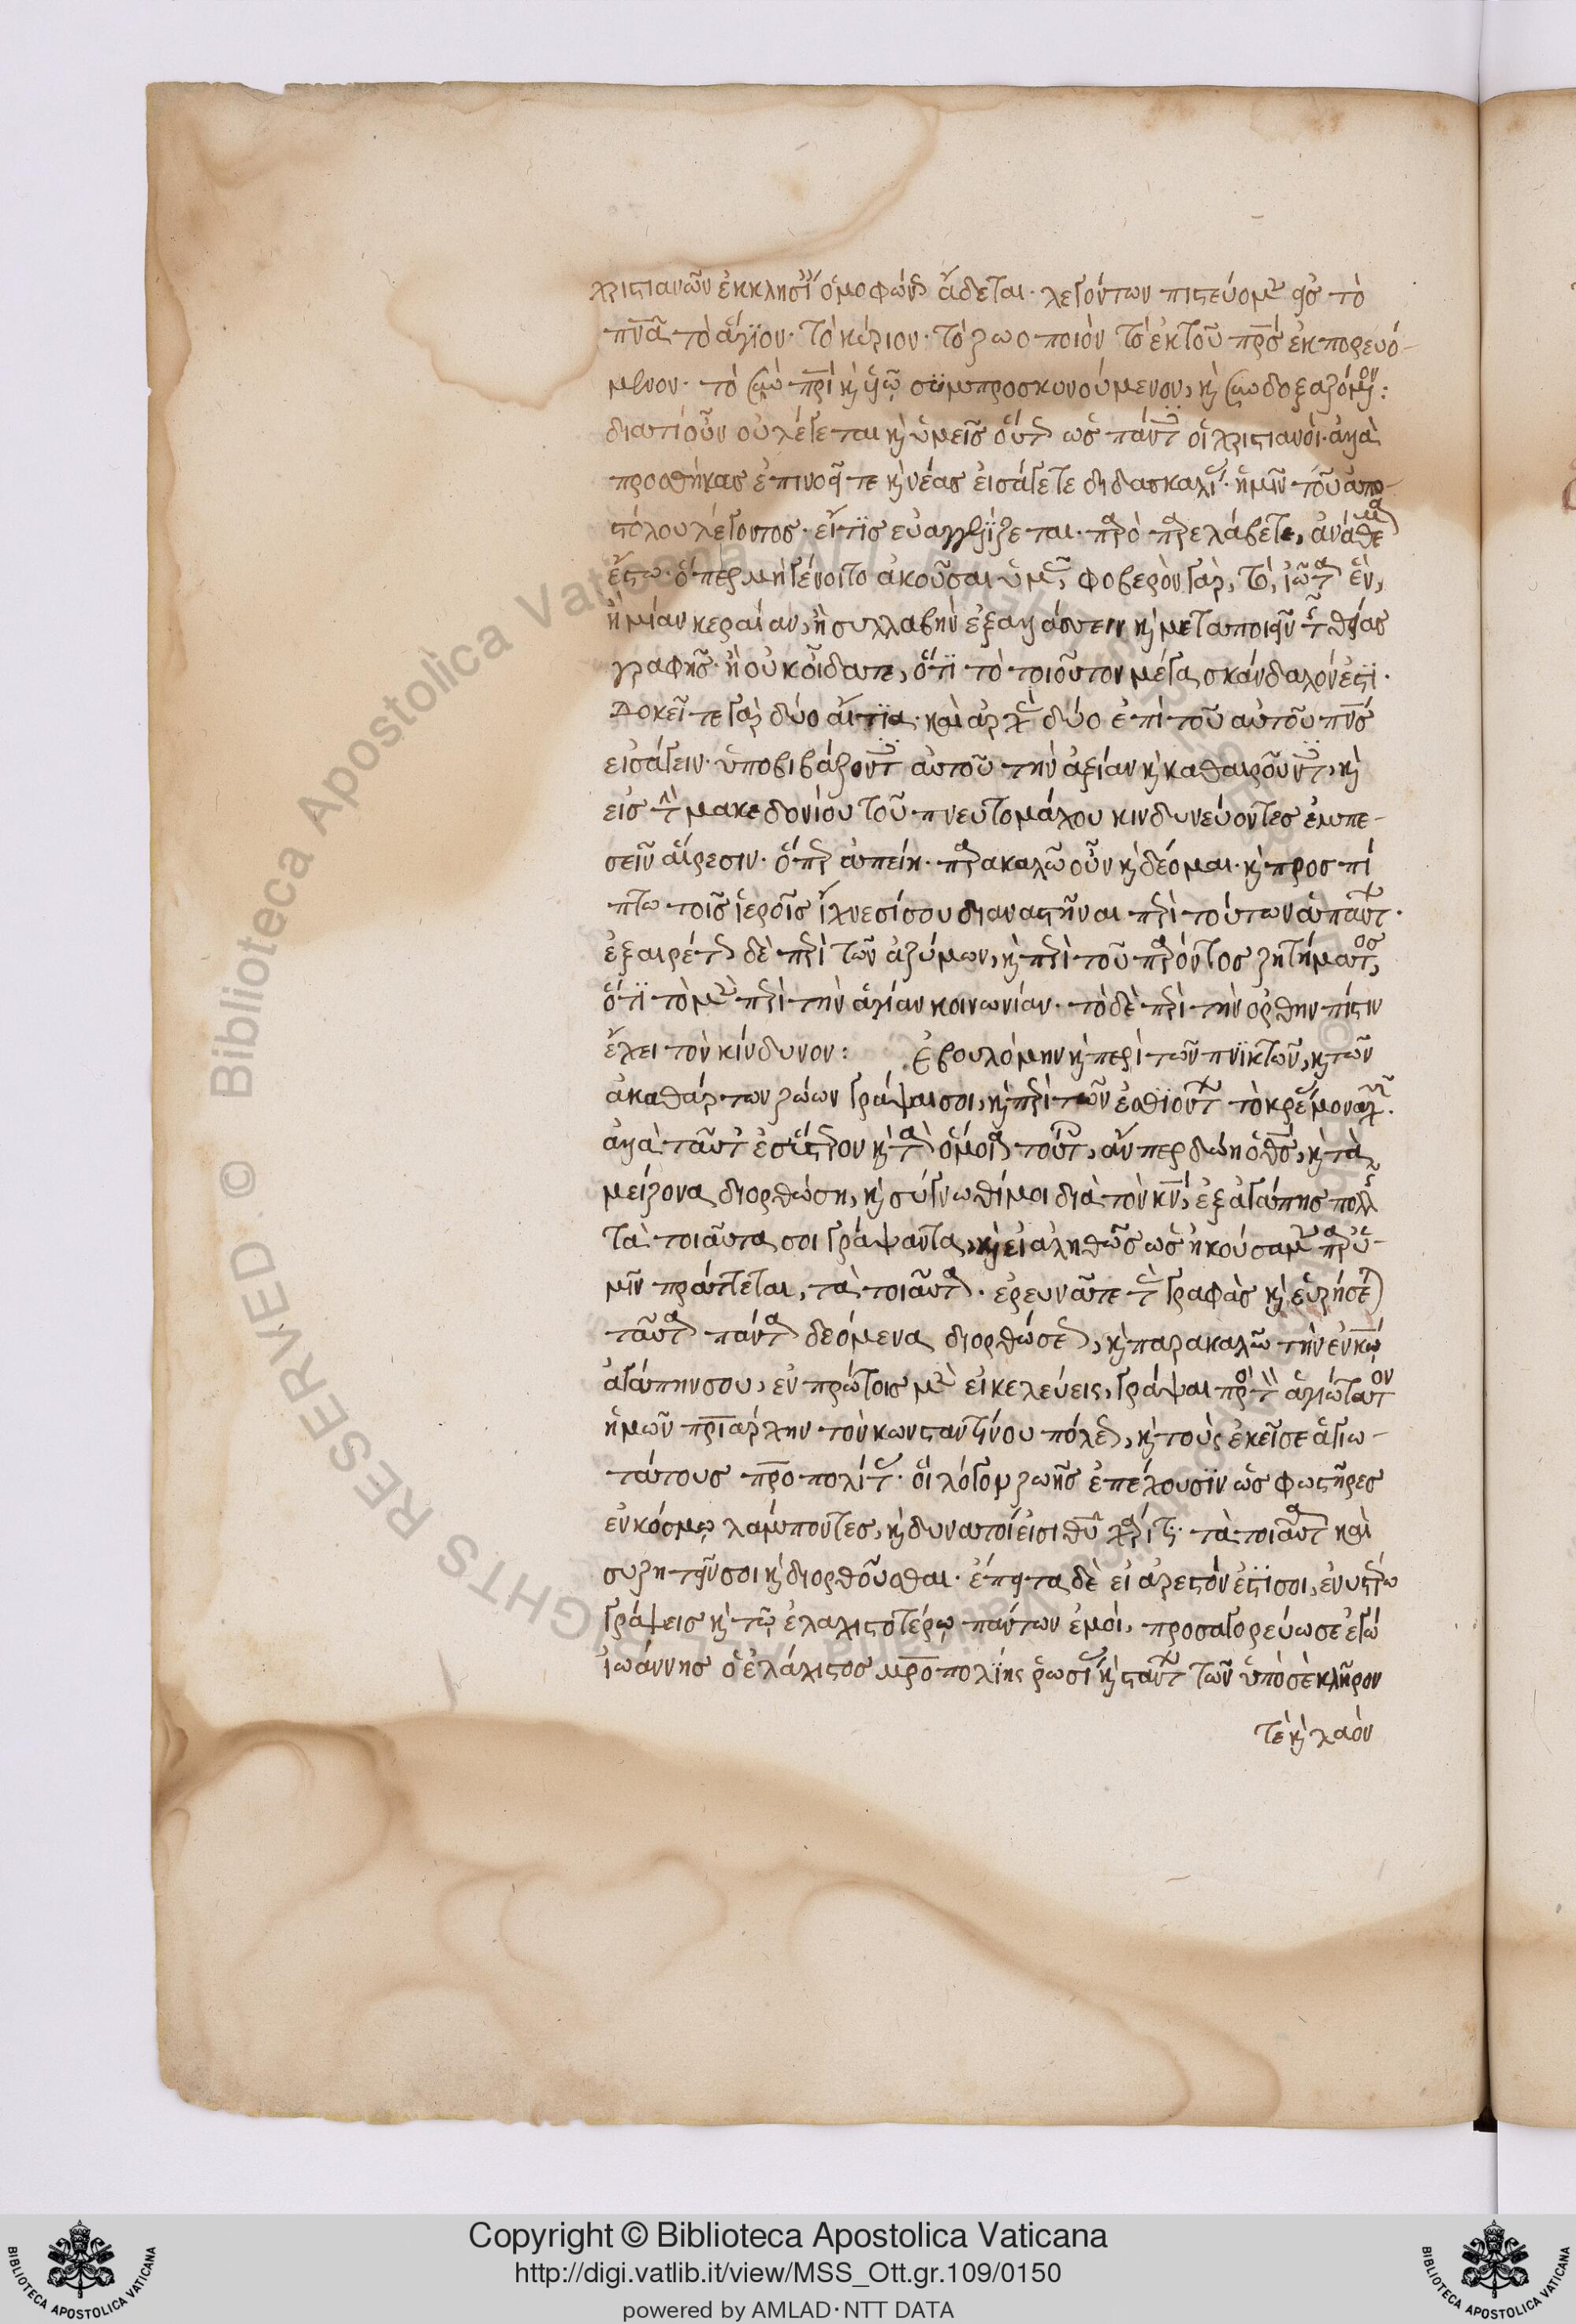 χριστιανῶν ἐκκλησί ὁμοφών ἄδεται· λεγόντων πιστεύομ εἰς τὸ
πνᾶ τὸ ἅγϊον· τὸ κύριον· τὸ ζωοποιὸν τὸ ἐκ τοῦ πρσ ἐκπορευό-
μενον· τὸ σὺν πρὶ κὶ υἱῶ σϋμπροσκυνούμενον, κὶ συνδοξαζόμον:
διατί οὖν οὐ λέγεται κὶ ὑμεῖς οὕτ ὡς πάντ οἱ χριστιανοὶ· ἀλλὰ
προσθήκας ἐπινοεῖτε κὶ νέας εἰσάγετε διδασκαλί· ἡμῖν τοῦ ἀπο-
στόλου λέγοντος· εἴ τϊς εὐαγγελίζεται· παρ ὃ παρελάβετε, ἀνάθεμα
ἔστω· ὅπερ μὴ γένοιτο ἀκοῦσαι ὑμ, φοβερὸν γὰρ, τὸ, ἰῶτα ἓν,
ἢ μίαν κεραίαν, ἢ συλλαβὴν ἐξαλλάσσειν κὶ μεταποιεῖν τ θείας
γραφῆς· ἢ οὐκ οἴδατε, ὅτϊ τὸ τοιοῦτον μέγα σκάνδαλόν ἐστϊ·
δοκεῖτε γὰρ δύο αἴτϊα· καὶ ἀρχ δύο ἐπὶ τοῦ αὐτοῦ πνσ
εἰσάγειν· ὑποβιβάζοντ αὐτοῦ τὴν ἀξίαν κὶ καθαιροῦντ, κὶ
εἰς τὴν μακεδονίου τοῦ πνευτομάχου κινδυνεύοντες ἐμπε-
σεῖν αἵρεσιν· ὅπερ ἀπείη· παρακαλῶ οὖν κὶ δέομαι· κὶ προσπί
πτω τοῖς ἱεροῖς ἴχνεσί σου διαναστῆναι περὶ τούτων ἁπάντ·
ἐξαιρέτ δὲ περὶ τῶν ἀζύμων, κὶ περὶ τοῦ παρόντος ζητήματος,
ὅτϊ τὸ μὲν περὶ τὴν ἁγίαν κοινωνίαν· τὸ δὲ περὶ τὴν ὀρθὴν πίστιν
ἔχει τὸν κίνδυνον: Ἐβουλόμην κὶ περὶ τῶν πνϊκτῶν, κὶ τῶν
ἀκαθάρτων ζώων γράψαι σοι, κὶ περὶ τῶν ἐσθϊόντ τὸ κρέ μοναχ·
ἀλλὰ ταῦτ ἐσύστερον κὶ τὰ ὅμοια τούτ, ἄνπερ δώη ὁ θσ, κὶ τὰ
μείζονα διορθώση, κὶ σύγνωθί μοι διὰ τὸν κν, ἐξ ἀγάπης πολλ
τὰ τοιαῦτα σοι γράψαντα, κὶ εἰ ἀληθῶς ὡς ἠκούσαμ παρ ὑ-
μῖν πράττεται, τὰ τοιαῦτα· ἐρευνᾶτε τὰς γραφὰς κὶ εὑρήσετ
ταῦτα πάντα δεόμενα διορθώσε, κὶ παρακαλῶ τὴν ἐν κῶ
ἀγάπην σου, ἐν πρώτοις μὲν εἰ κελεύεις, γράψαι πρὸς τὸν ἁγιώτατον
ἡμῶν πριάρχην τὸν κωνσταντίνου πόλε, κὶ τοὺς ἐκεῖσε ἁγιω-
τάτους προπολίτ· οἱ λόγον ζωῆς ἐπέχουσϊν ὡς φωστῆρες
ἐν κόσμω λάμποντες, κὶ δυνατοί εἰσι θυ χάριτι· τὰ τοιαῦτα καὶ
συζητεῖν σοι κὶ διορθοῦσθαι· ἔπειτα δὲ εἰ ἀρεστόν ἐστϊ σοι, ἐν ὑστέρω
γράψεις κὶ τῶ ἐλαχιστοτέρω πάντων ἐμοὶ, προσαγορεύω σε ἐγὼ
ἰωάννης ὁ ἐλάχιστος μροπολίης ῥωσί κὶ πάντ τῶν ὑπὸ σὲ κλῆρον
τὲ κὶ λαὸν
Copyright © Biblioteca Apostolica Vaticana
http://digi.vatlib.it/view/MSS_Ott.gr.109/0150
powered by AMLAD·NTT DATA